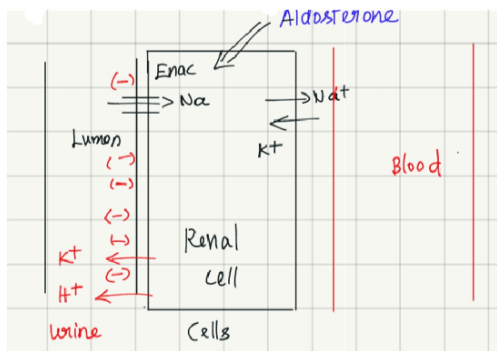 Aldosterone
(-) Enac
> Na
Na+
K+
Lumen
Blood
(-)
(-)
(-)
(-)
Renal
cell
K+
(-)
H+
Urine
Cells